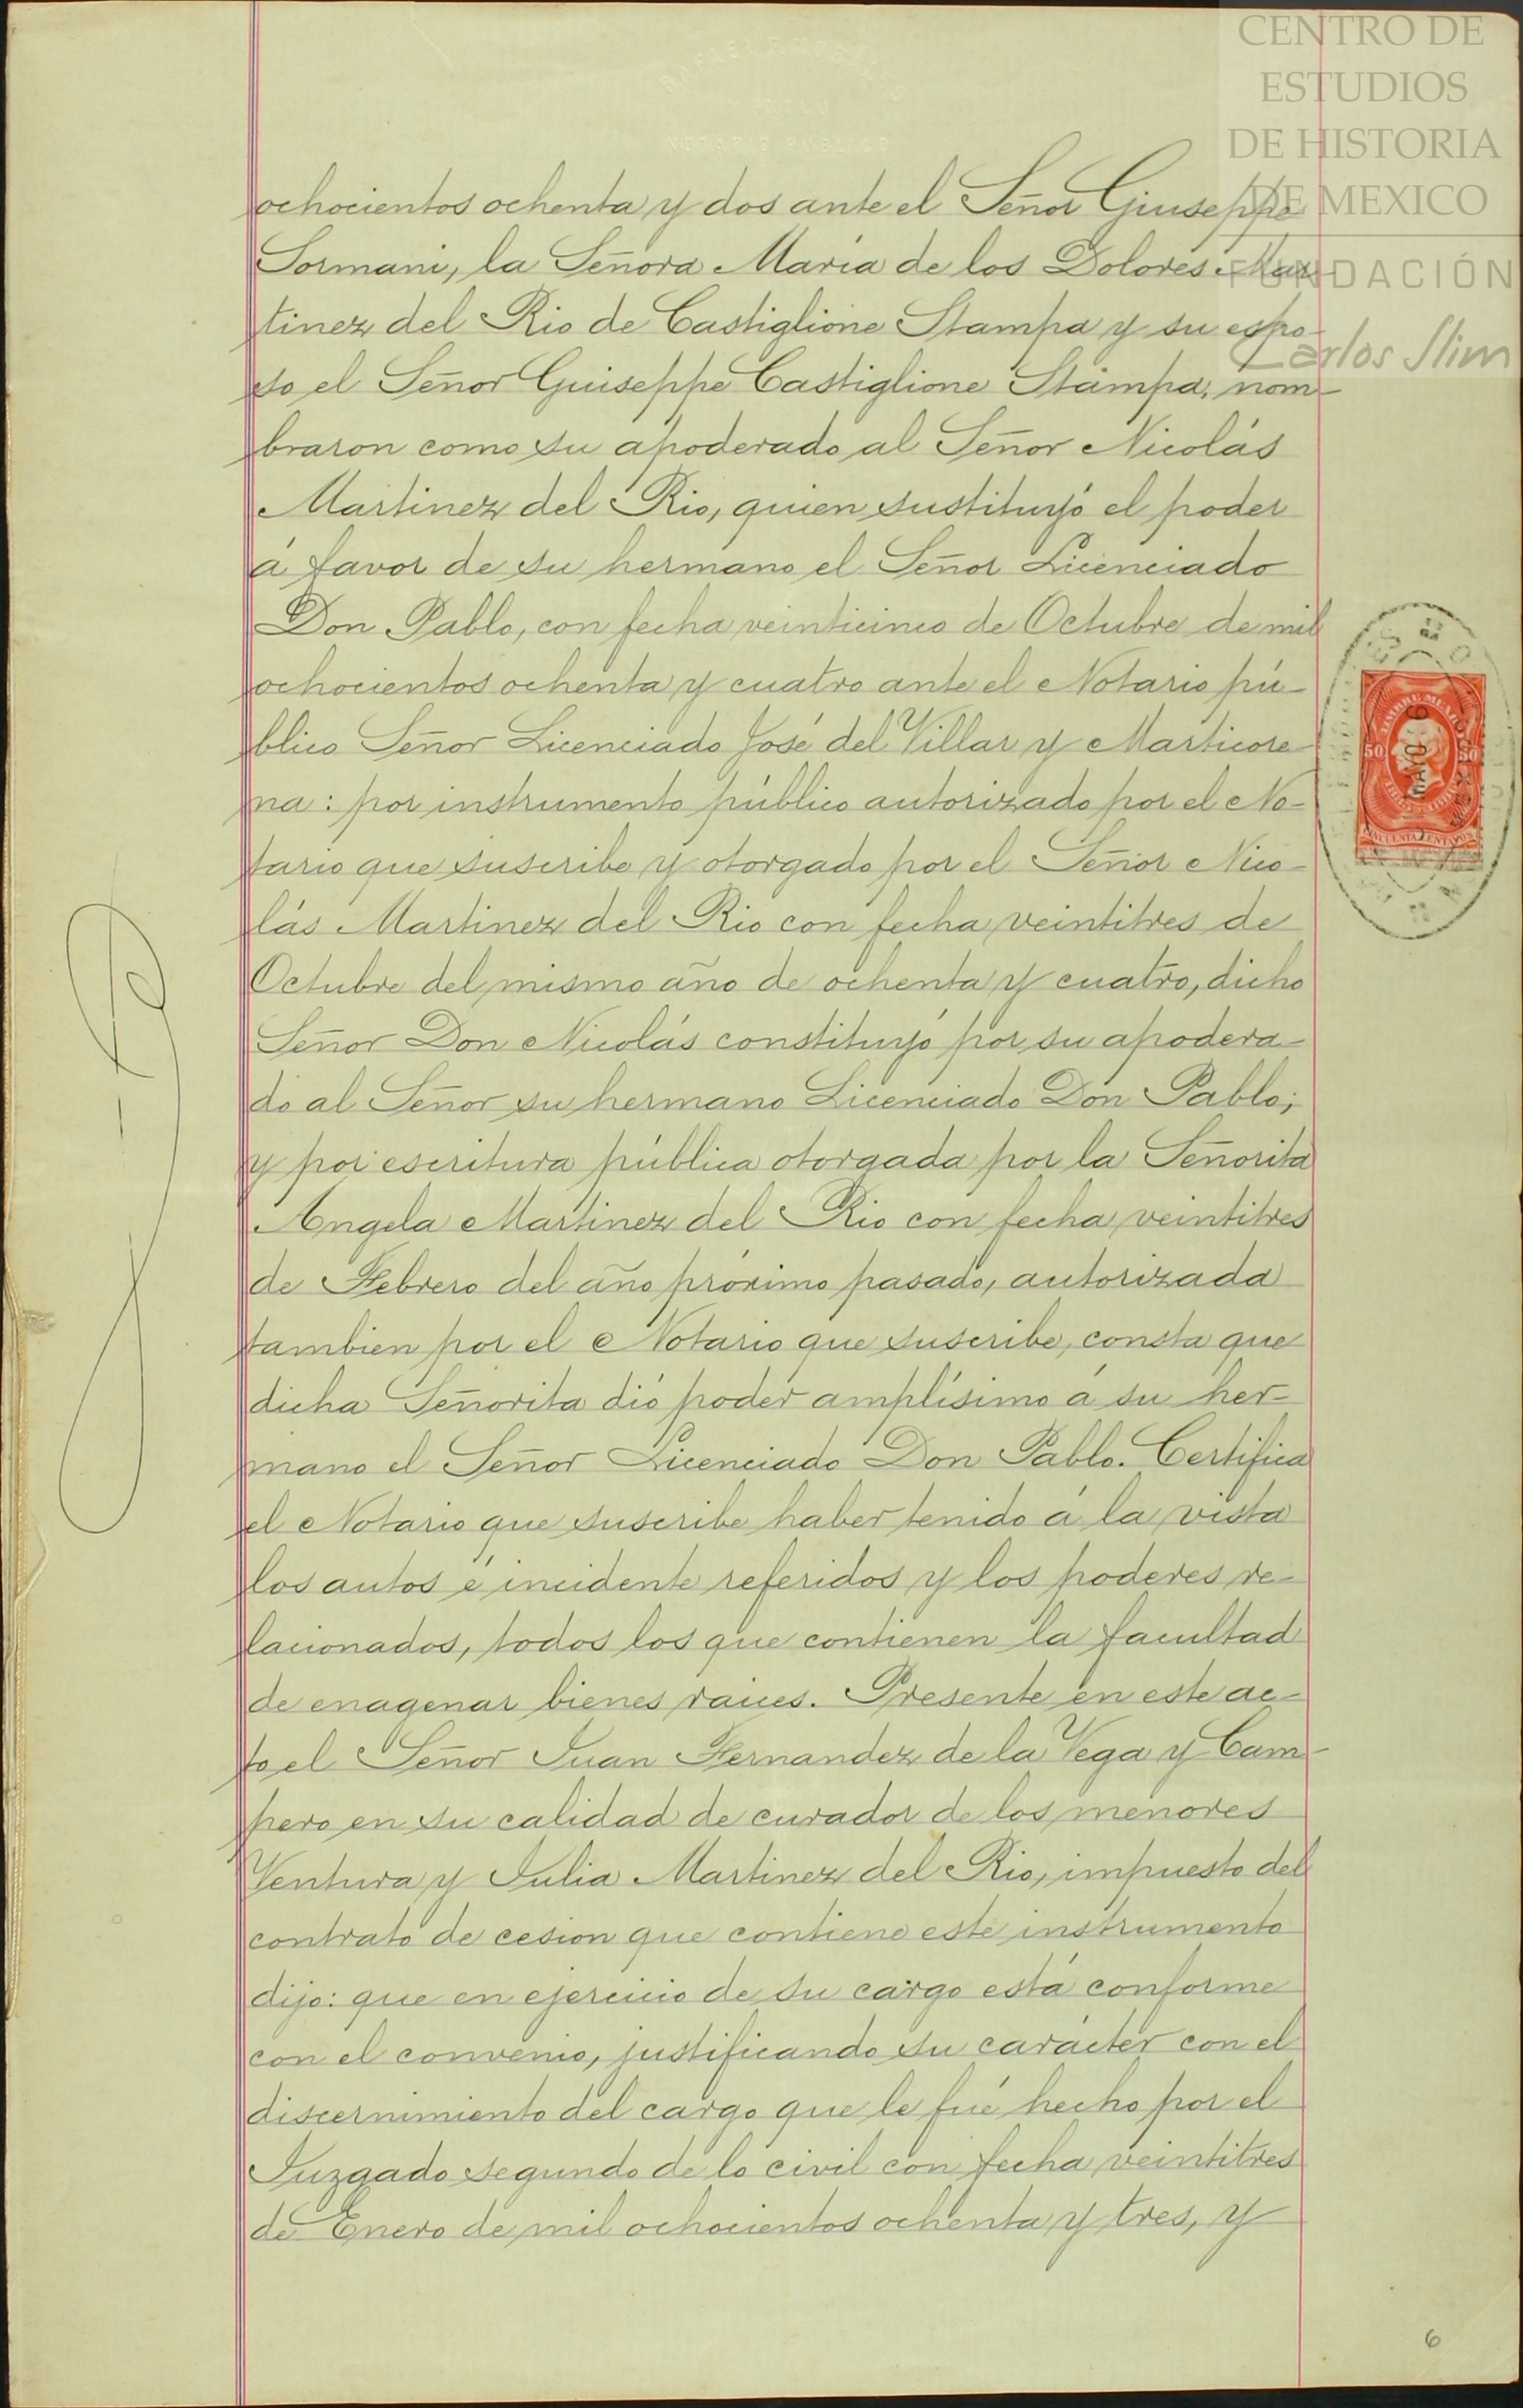 CENTRO DE
ESTUDIOS
DE HISTORIA
DE MEXICO
FUNDACIÓN
Carlos Slim
ochocientos ochenta y dos ante el Señor Giuseppe
Sormani, la Señora María de los Dolores Mar-
tinez del Rio de Castiglione Stampa y su espo-
so el Señor Guiseppe Castiglione Stampa, nom-
braron como su apoderado al Señor Nicolás
Martinez del Rio, quien sustituyó el poder
á favor de su hermano el Señor Licenciado
Don Pablo, con fecha veinticinco de Octubre de mil
ochocientos ochenta y cuatro ante el Notario pú-
blico Señor Licenciado José del Villar y Marticore-
na: por instrumento público autorizado por el No-
tario que suscribe y otorgado por el Señor Nico-
lás Martinez del Rio con fecha veintitres de
Octubre del mismo año de ochenta y cuatro, dicho
Señor Don Nicolás constituyó por su apodera-
do al Señor su hermano Licenciado Don Pablo;
y por escritura pública otorgada por la Señorita
Angela Martinez del Rio con fecha veintitres
de Febrero del año próximo pasado, autorizada
tambien por el Notario que suscribe, consta que
dicha Señorita dió poder amplísimo á su her-
mano el Señor Licenciado Don Pablo. Certifica
el Notario que suscribe haber tenido á la vista
los autos é incidente referidos y los poderes re-
lacionados, todos los que contienen la facultad
de enagenar bienes raices. Presente en este ac-
to el Señor Juan Fernandez de la Vega y Cam-
pero en su calidad de curador de los menores
Ventura y Julia Martinez del Rio, impuesto del
contrato de cesion que contiene este instrumento
dijo: que en ejercicio de su cargo está conforme
con el convenio, justificando su carácter con el
discernimiento del cargo que le fué hecho por el
Juzgado segundo de lo civil con fecha veintitres
de Enero de mil ochocientos ochenta y tres, y
50 50
MAYO
CINCUENTA CENTAVOS
6